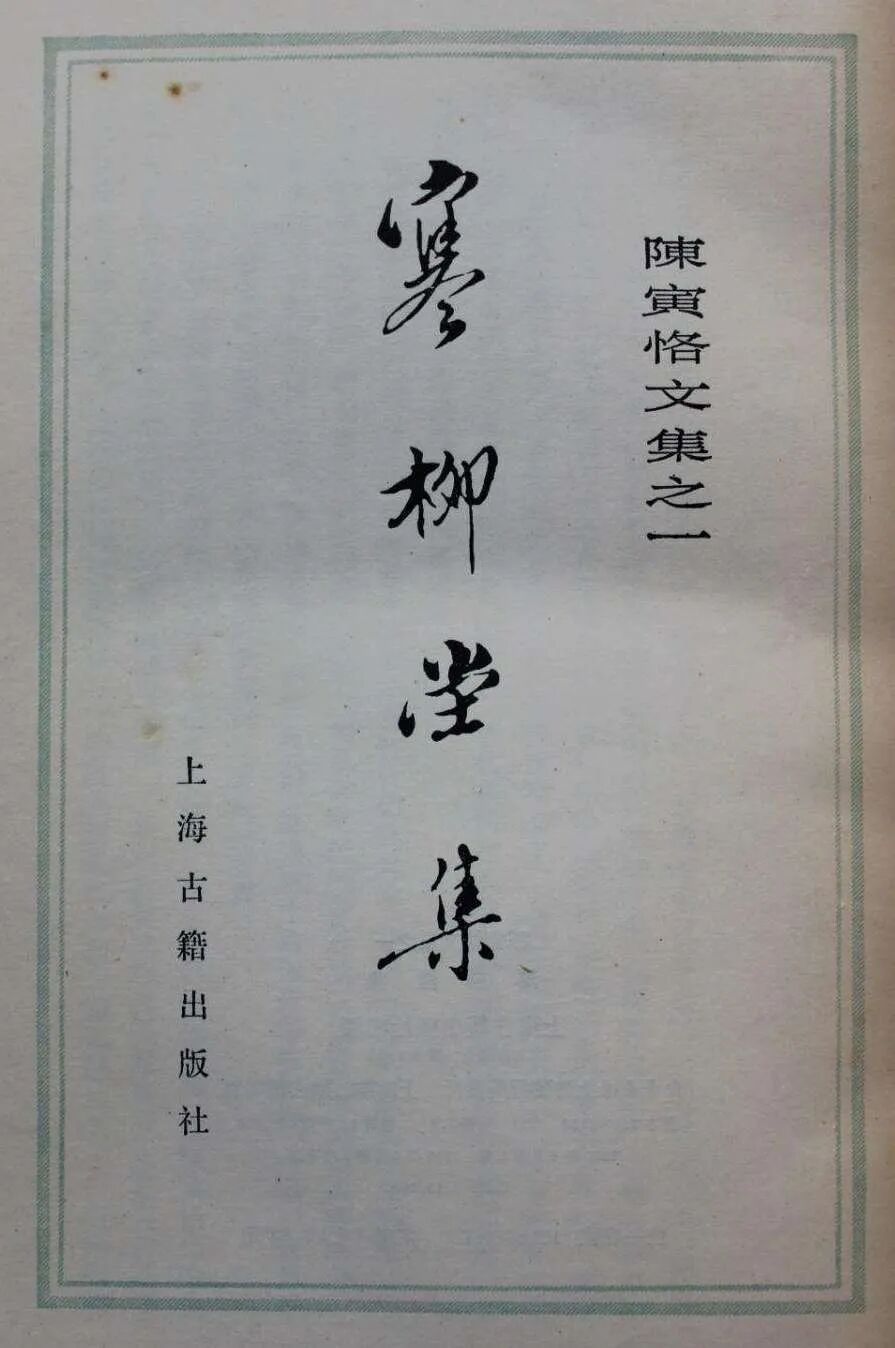 陳寅恪文集之一
寒柳堂集
上海古籍出版社